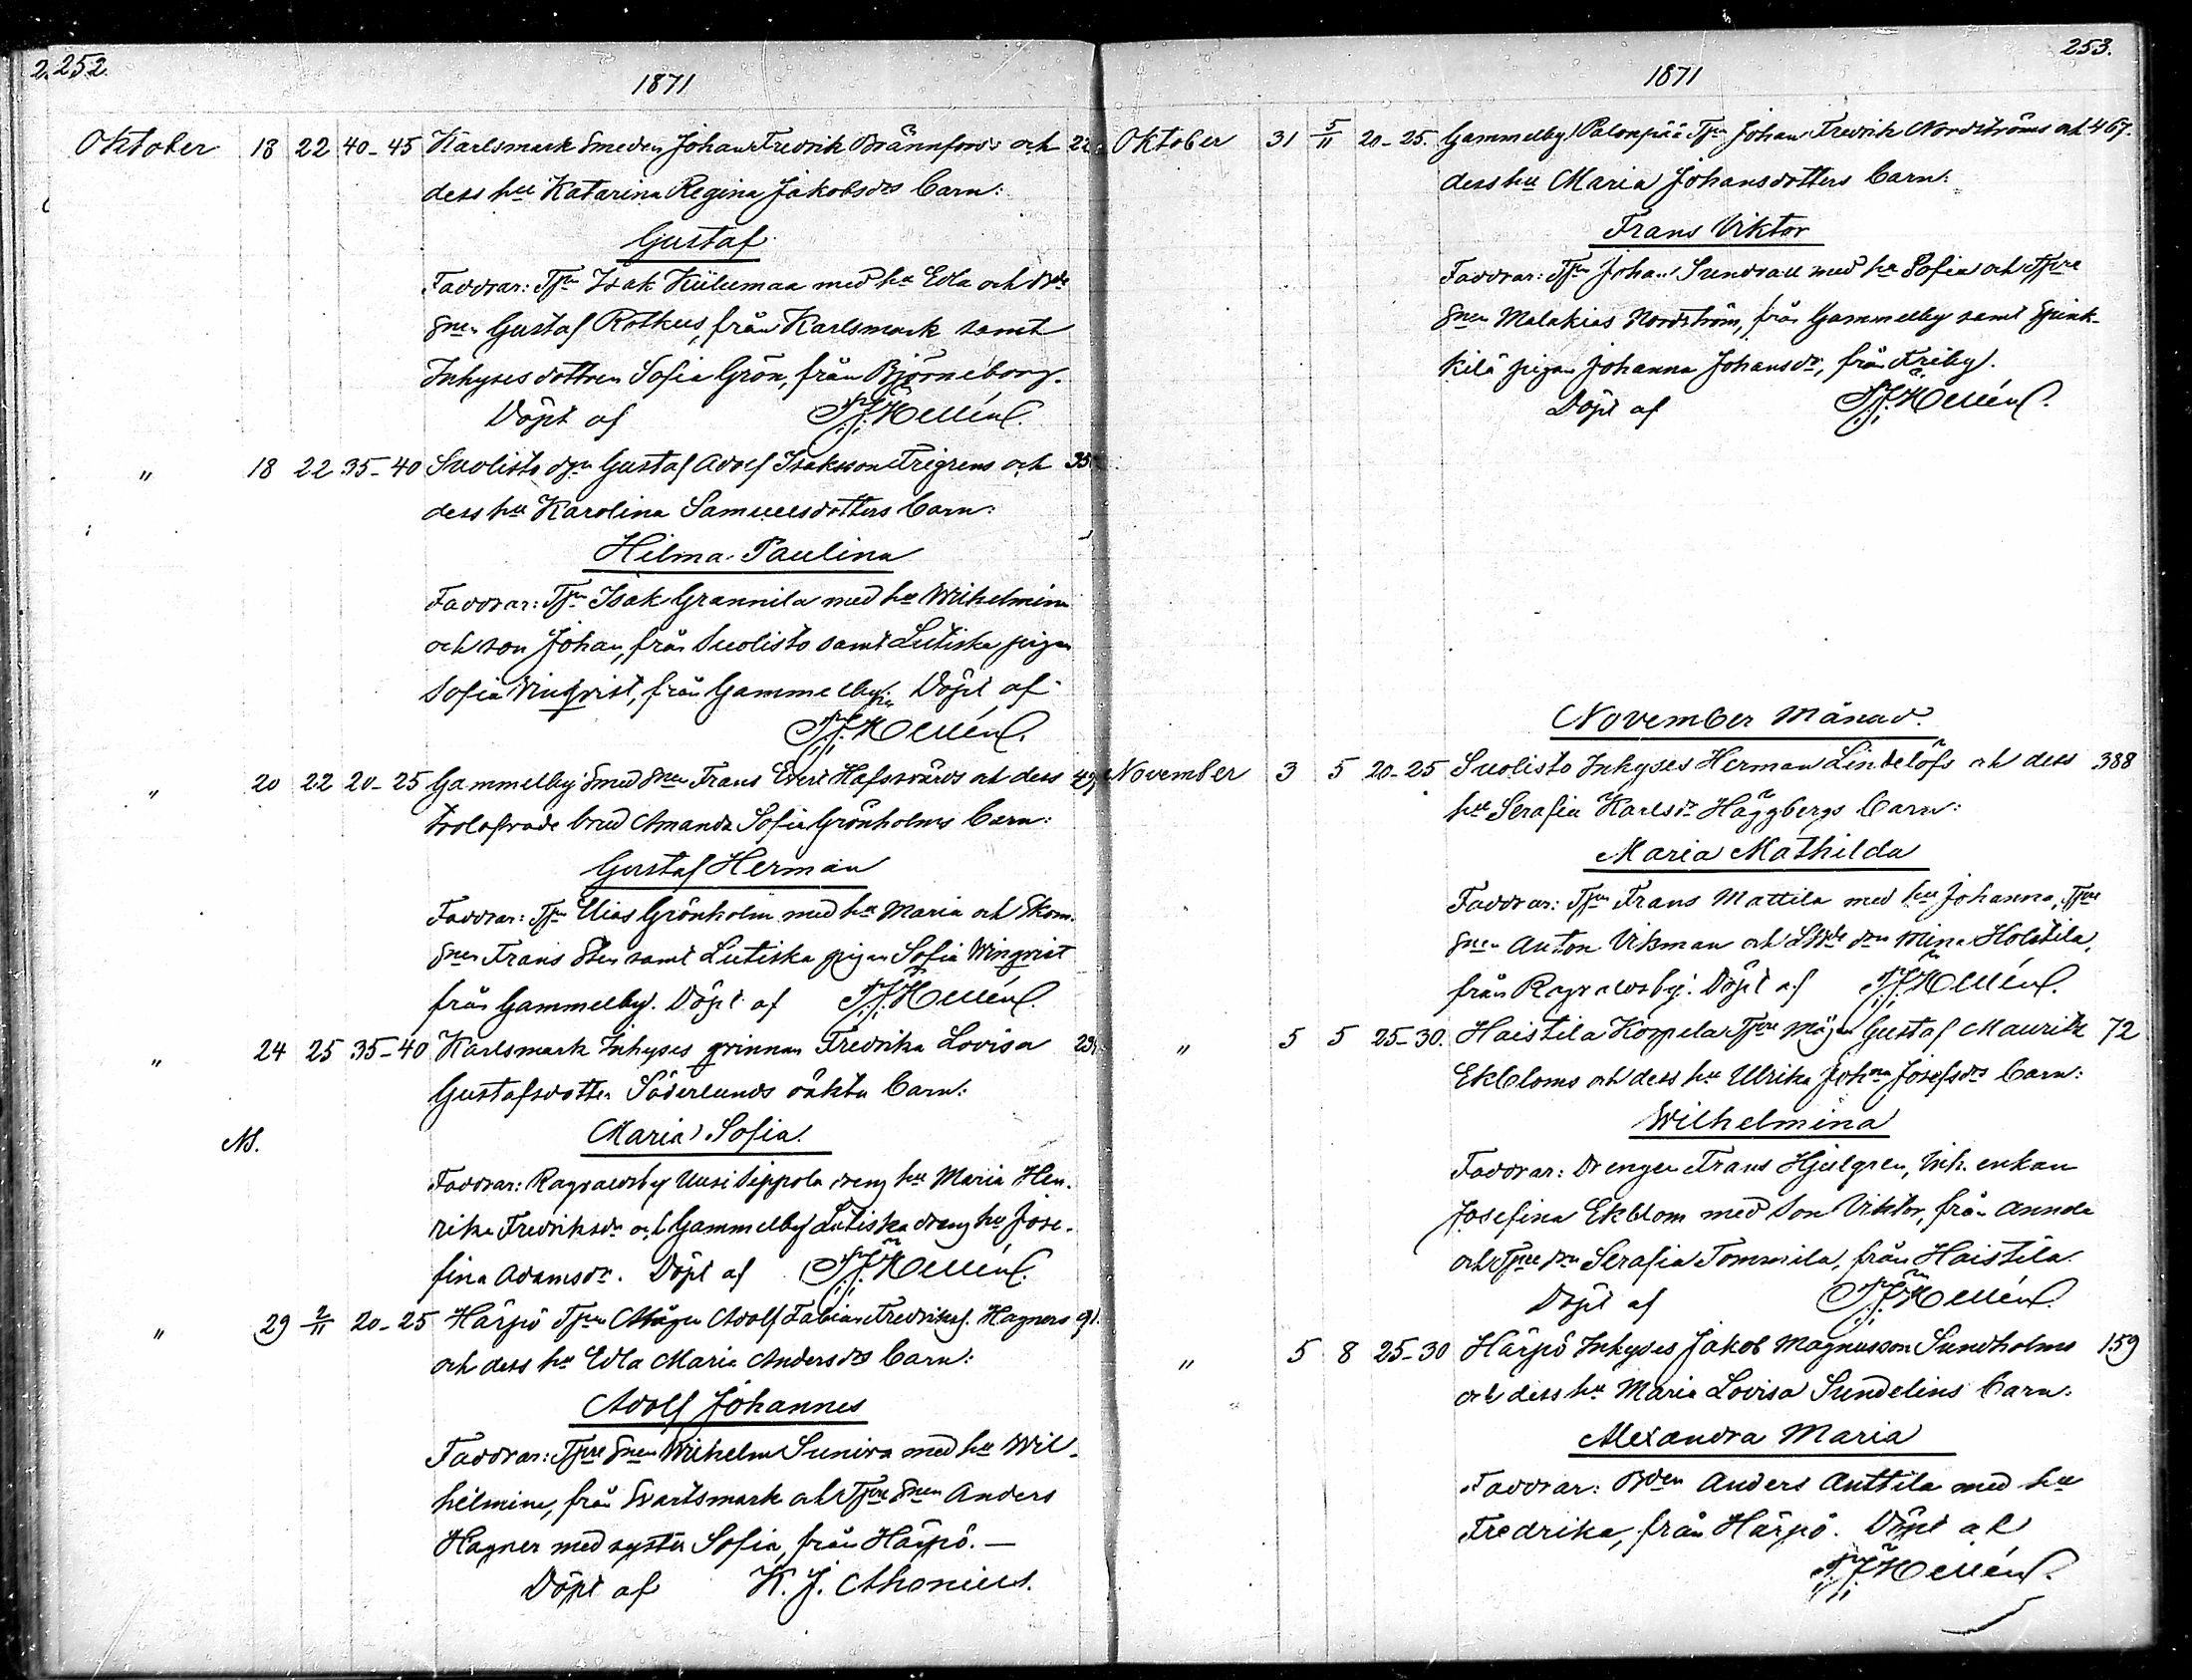 2. 252.
1871
Oktober 18 22 40-45 Karlsmark Smeden Johan Fredrik Brännfors's och 22
dess hu Katarina Regina Jakobsdrs barn:
Gustaf
Faddrar: Tpn Isak Kiilumaa med hu Edla och
Snen Gustaf Rotkus, från Karlsmark samt
Inhyses dottren Sofia Grön, från Björneborg.
Döpt af
" 18 22 35-40 Suolisto Gustaf Adolf Isaksson Frigrens och 35
dess hu Karolina Samuelsdotters barn:
Hilma Paulina
Faddrar: Tpn Isak Grannila med hu Wilhelmina
och son Johan, från Suolisto samt Lutiska pigan
Sofia Winqvist, från Gammelby. Döpt af
" 20 22 20-25 Gammelby Smed Snen Frans Evert Hafssvärds och dess 49
trolofvade brud Amanda Sofia Grönholms barn:
Gustaf Herman
Faddrar: Tpn Elias Grönholm med hu Maria och Skom.
Snen Frans Sten samt Lutiska pigan Sofia Winqvist
från Gammelby. Döpt af
" 24 25 35-40 Karlsmark Inhyses qvinnan Fredrika Lovisa 23
Gustafsdotter Söderlunds oäkta barn:
Maria Sofia.
Faddrar: Ragvaldsby Uusi Seppola dreng hu Maria Hen-
rika Fredriksdr och Gammelby Lutiska dreng hu Jose-
fina Adamsdr. Döpt af
" 29 2/11 20-25 Härpö Tpn Mågen Adolf Fabian Fredrikss. Hagners 91.
och dess hu Edla Maria Andersdrs barn:
Adolf Johannes
Faddrar: Tpre Snen Wilhelm Suniva med hu Wil-
helmina, från Svartsmark och Tpre Snen Anders
Hagner med syster Sofia, från Härpö. —
Döpt af K. J. Ahonius.
253.
1871
Oktober 31 5/11 20-25. Gammelby Palonpää Tpn Johan Fredrik Nordströms och 467.
dess hu Maria Johansdotters barn:
Frans Viktor
Faddrar: Tpn Johan Sundvall med hu Sofia och Tpre
Snen Malakias Nordström, från Gammelby samt
kilä pigan Johanna Johansdr, från Friby.
Döpt af
November Månad.
November 3 5 20-25 Suolisto Inhyses Herman Lindelöfs och dess 388
hu Serafia Karlsdr Häggbergs barn:
Maria Mathilda
Faddrar: Tpn Frans Mattila med hu Johanna, Tpre
Snen Anton Vikman och drn Mina Holstila,
från Ragvaldsby. Döpt af
" 5 5 25-30. Haistila Korpela Tpre Mågen Gustaf Mauritz 72
Ekbloms och dess hu Ulrika Johna Josefsdrs barn:
Wilhelmina
Faddrar: Drengen Frans Hjulgren, Inh. enkan
Josefina Ekblom med Son Viktor, från Annola
och Tpre drn Serafia Tommila, från Haistila.
Döpt af
" 5 8 25-30 Härpö Inhyses Jakob Magnusson Sundholms 159
och dess hu Maria Lovisa Sundelins barn:
Alexandra Maria
Faddrar: Bden Anders Anttila med hu
Fredrika, från Härpö. Döpt af